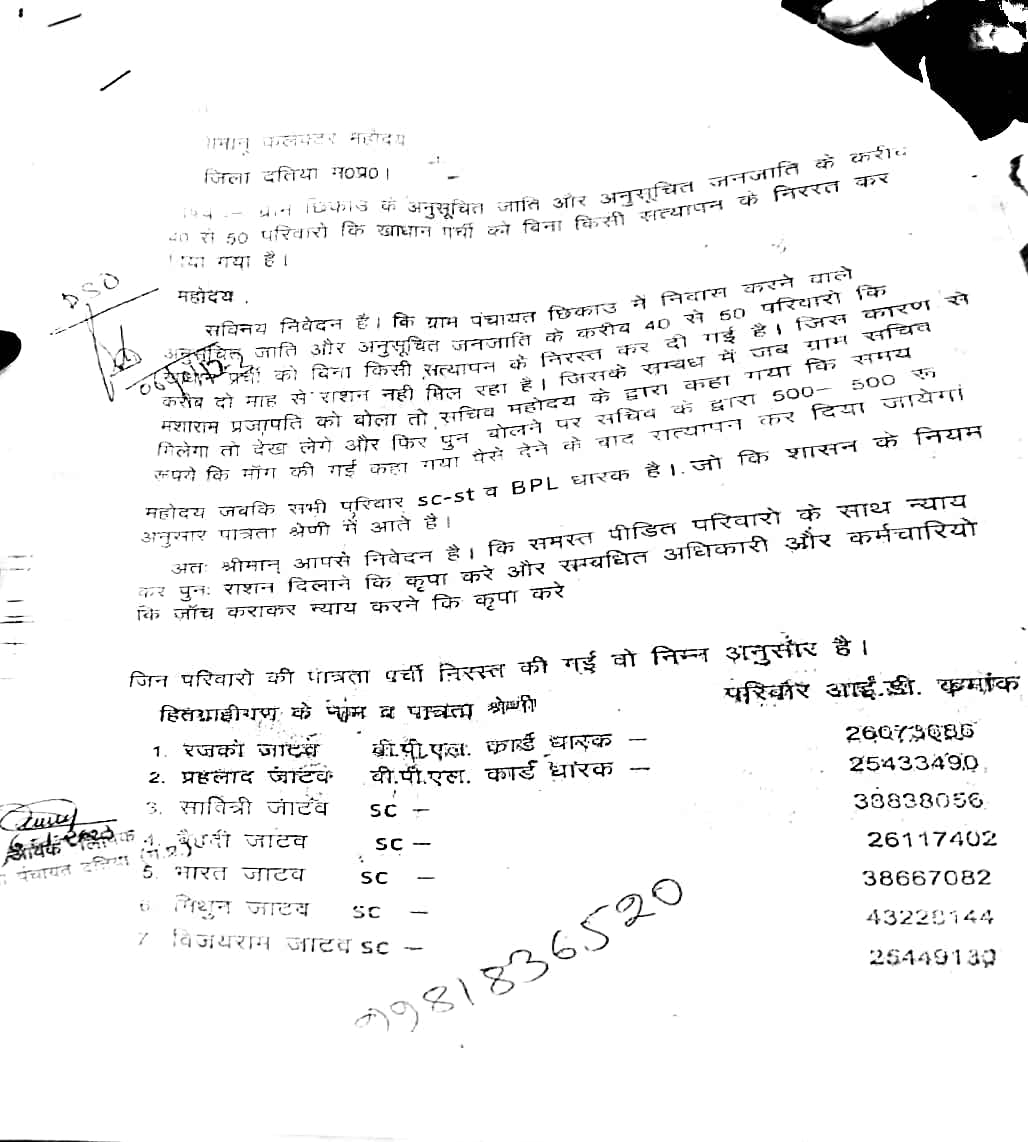 श्रीमान् कलेक्टर महोदय
जिला दतिया म०प्र०।
विषय :– ग्राम छिकाउ के अनुसूचित जाति और अनुसूचित जनजाति के करीब
40 से 50 परिवारो कि खाधान पर्ची को बिना किसी सत्यापन के निररत कर
दिया गया है।
DSO
महोदय ,
सविनय निवेदन है। कि ग्राम पंचायत छिकाउ में निवास करने वाले
अनुसूचित जाति और अनुसूचित जनजाति के करीब 40 से 50 परिवारो कि
खाधान प्रर्ची को बिना किसी सत्यापन के निरस्त कर दी गई है। जिस कारण से
करीब दो माह से राशन नही मिल रहा है। जिसके सम्बध में जब ग्राम सचिव
मशाराम प्रजापति को बोला तो सचिव महोदय के द्वारा कहा गया कि समय
मिलेगा तो देख लेगे और फिर पुन बोलने पर सचिव के द्वारा 500– 500 रू
रूपये कि मॉग की गई कहा गया पैसे देने के बाद सत्यापन कर दिया जायेगा।
महोदय जबकि सभी परिवार sc-st व BPL धारक है। जो कि शासन के नियम
अनुसार पात्रता श्रेणी में आते है।
अतः श्रीमान् आपसे निवेदन है। कि समस्त पीडित परिवारो के साथ न्याय
कर पुनः राशन दिलाने कि कृपा करे और सम्बधित अधिकारी और कर्मचारियो
कि जॉच कराकर न्याय करने कि कृपा करे
जिन परिवारो की पात्रता पर्ची निरस्त की गई वो निम्न अनुसार है।
हितग्राहीगण के नाम व पात्रता श्रेणी परिवार आई.डी. कमांक
1. रजको जाटव वी.पी.एल. कार्ड धारक – 26073686
2. प्रहलाद जाटव वी.पी.एल. कार्ड धारक – 25433490
3. सावित्री जाटव sc – 38838056
4. जाटव sc – 26117402
5. भारत जाटव sc – 38667082
6. मिथुन जाटव sc – 43228144
7. विजयराम जाटव sc – 25449130
पंचायत दतिया (म.प्र.)
9981836520